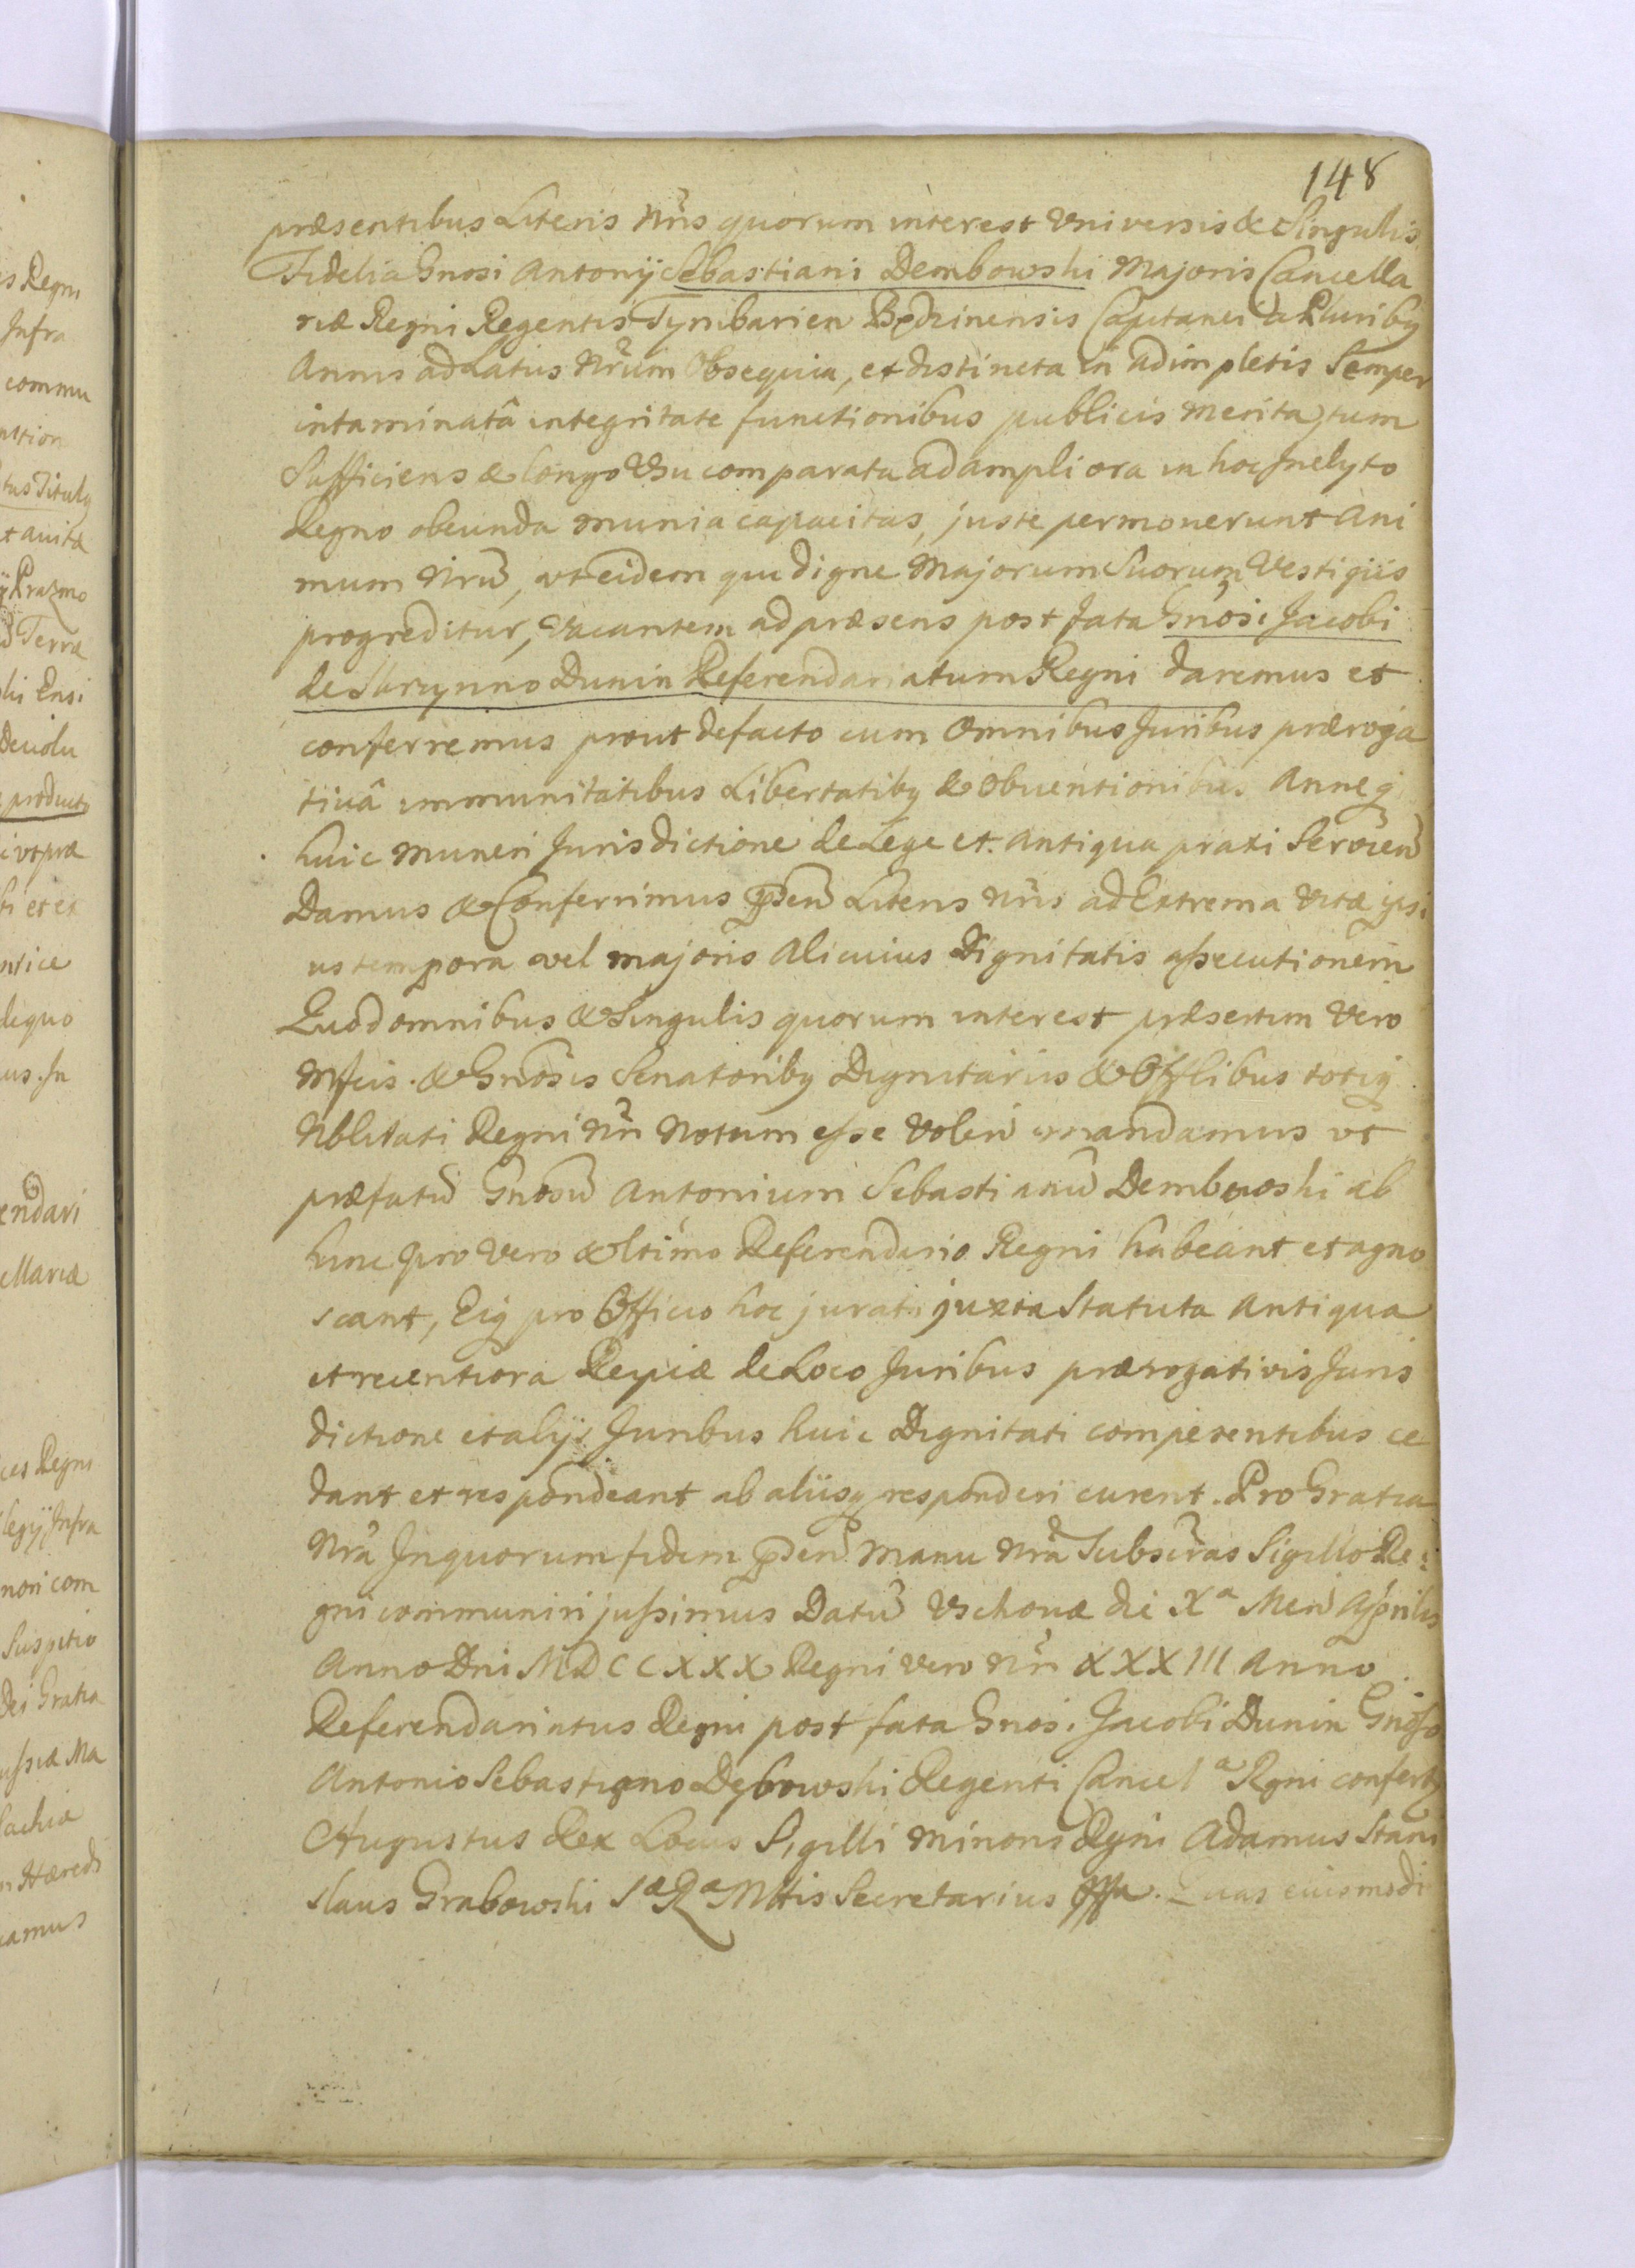 148
præsentibus Literis Nr̃is quorum interest Universis & Singulis
Fidelia Gnosi Antonij Sebastiani Dembowski Majoris Cancella
riæ Regni Regentis Tymbarien Będzinensis Capitanei a Pluribq
Annis ad Latus Nr̃um Obsequia, et distincta in adimpletis Semper
intaminatâ integritate functionibus publicis merita, tum
Sufficiens & longo Usu comparata ad ampliora in hoc Inclyto
Regno obeunda munia capacitas, juste permoverunt Ani
mum Nrũ, ut eidem qui digne Majorum Suorum Vestigiis
progreditur, Vacantem ad præsens post fata Gnosi Jacobi
de Skrzynno Dunin Referendariatum Regni daremus et
conferremus prout de facto cum Omnibus Juribus præroga
tivâ immunitatibus Libertatibq & Obventionibus Anneq
huic muneri Jurisdictione de Lege et Antiqua praxi Servien̄
Damus & Conferrimus pñden̄ Literis Nr̃is ad Extrema Vitæ ipsi
us tempora vel majoris Alicuius Dignitatis assecutionem
Quod omnibus & Singulis quorum interest præsertim Vero
Mfcis & Gnosis Senatoribq Dignitariis & Offlibus totiq
Nblitati Regni Nr̃i Notum esse Volen̄ mandamus ut
præfatũ Gnosũ Antonium Sebastianũ Dembowski ab
hinc pro Vero & ltimo Referendario Regni habeant et agno
scant, Eiq pro Officio hoc jurati juxta Statuta Antiqua
et recentiora Reipcæ de Loco Juribus prærogativis Juris
dictione et alijs Juribus huic Dignitati competentibus ce
dant et respondeant ab aliisq responderi curent. Pro Gratia
Nrã In quorum fidem pñden̄ Manu Nrã Subscr̃as Sigillo Re=
gni communiri jussimus Datũ Vschovæ die Xª Men̄ Aprilis
Anno Dni MDCCXXX Regni vero Nr̃i XXXIII Anno
Referendariatus Regni post fata Gnosi Jacobi Dunin Gnoso
Antonio Sebastiano Dębowski Regenti Cancelª Rgni confertq
Augustus Rex Locus Sigilli minoris Rgni Adamus Stani
slaus Grabowski Sª Rª Mttis Secretarius mpa. Quas eiusmodi